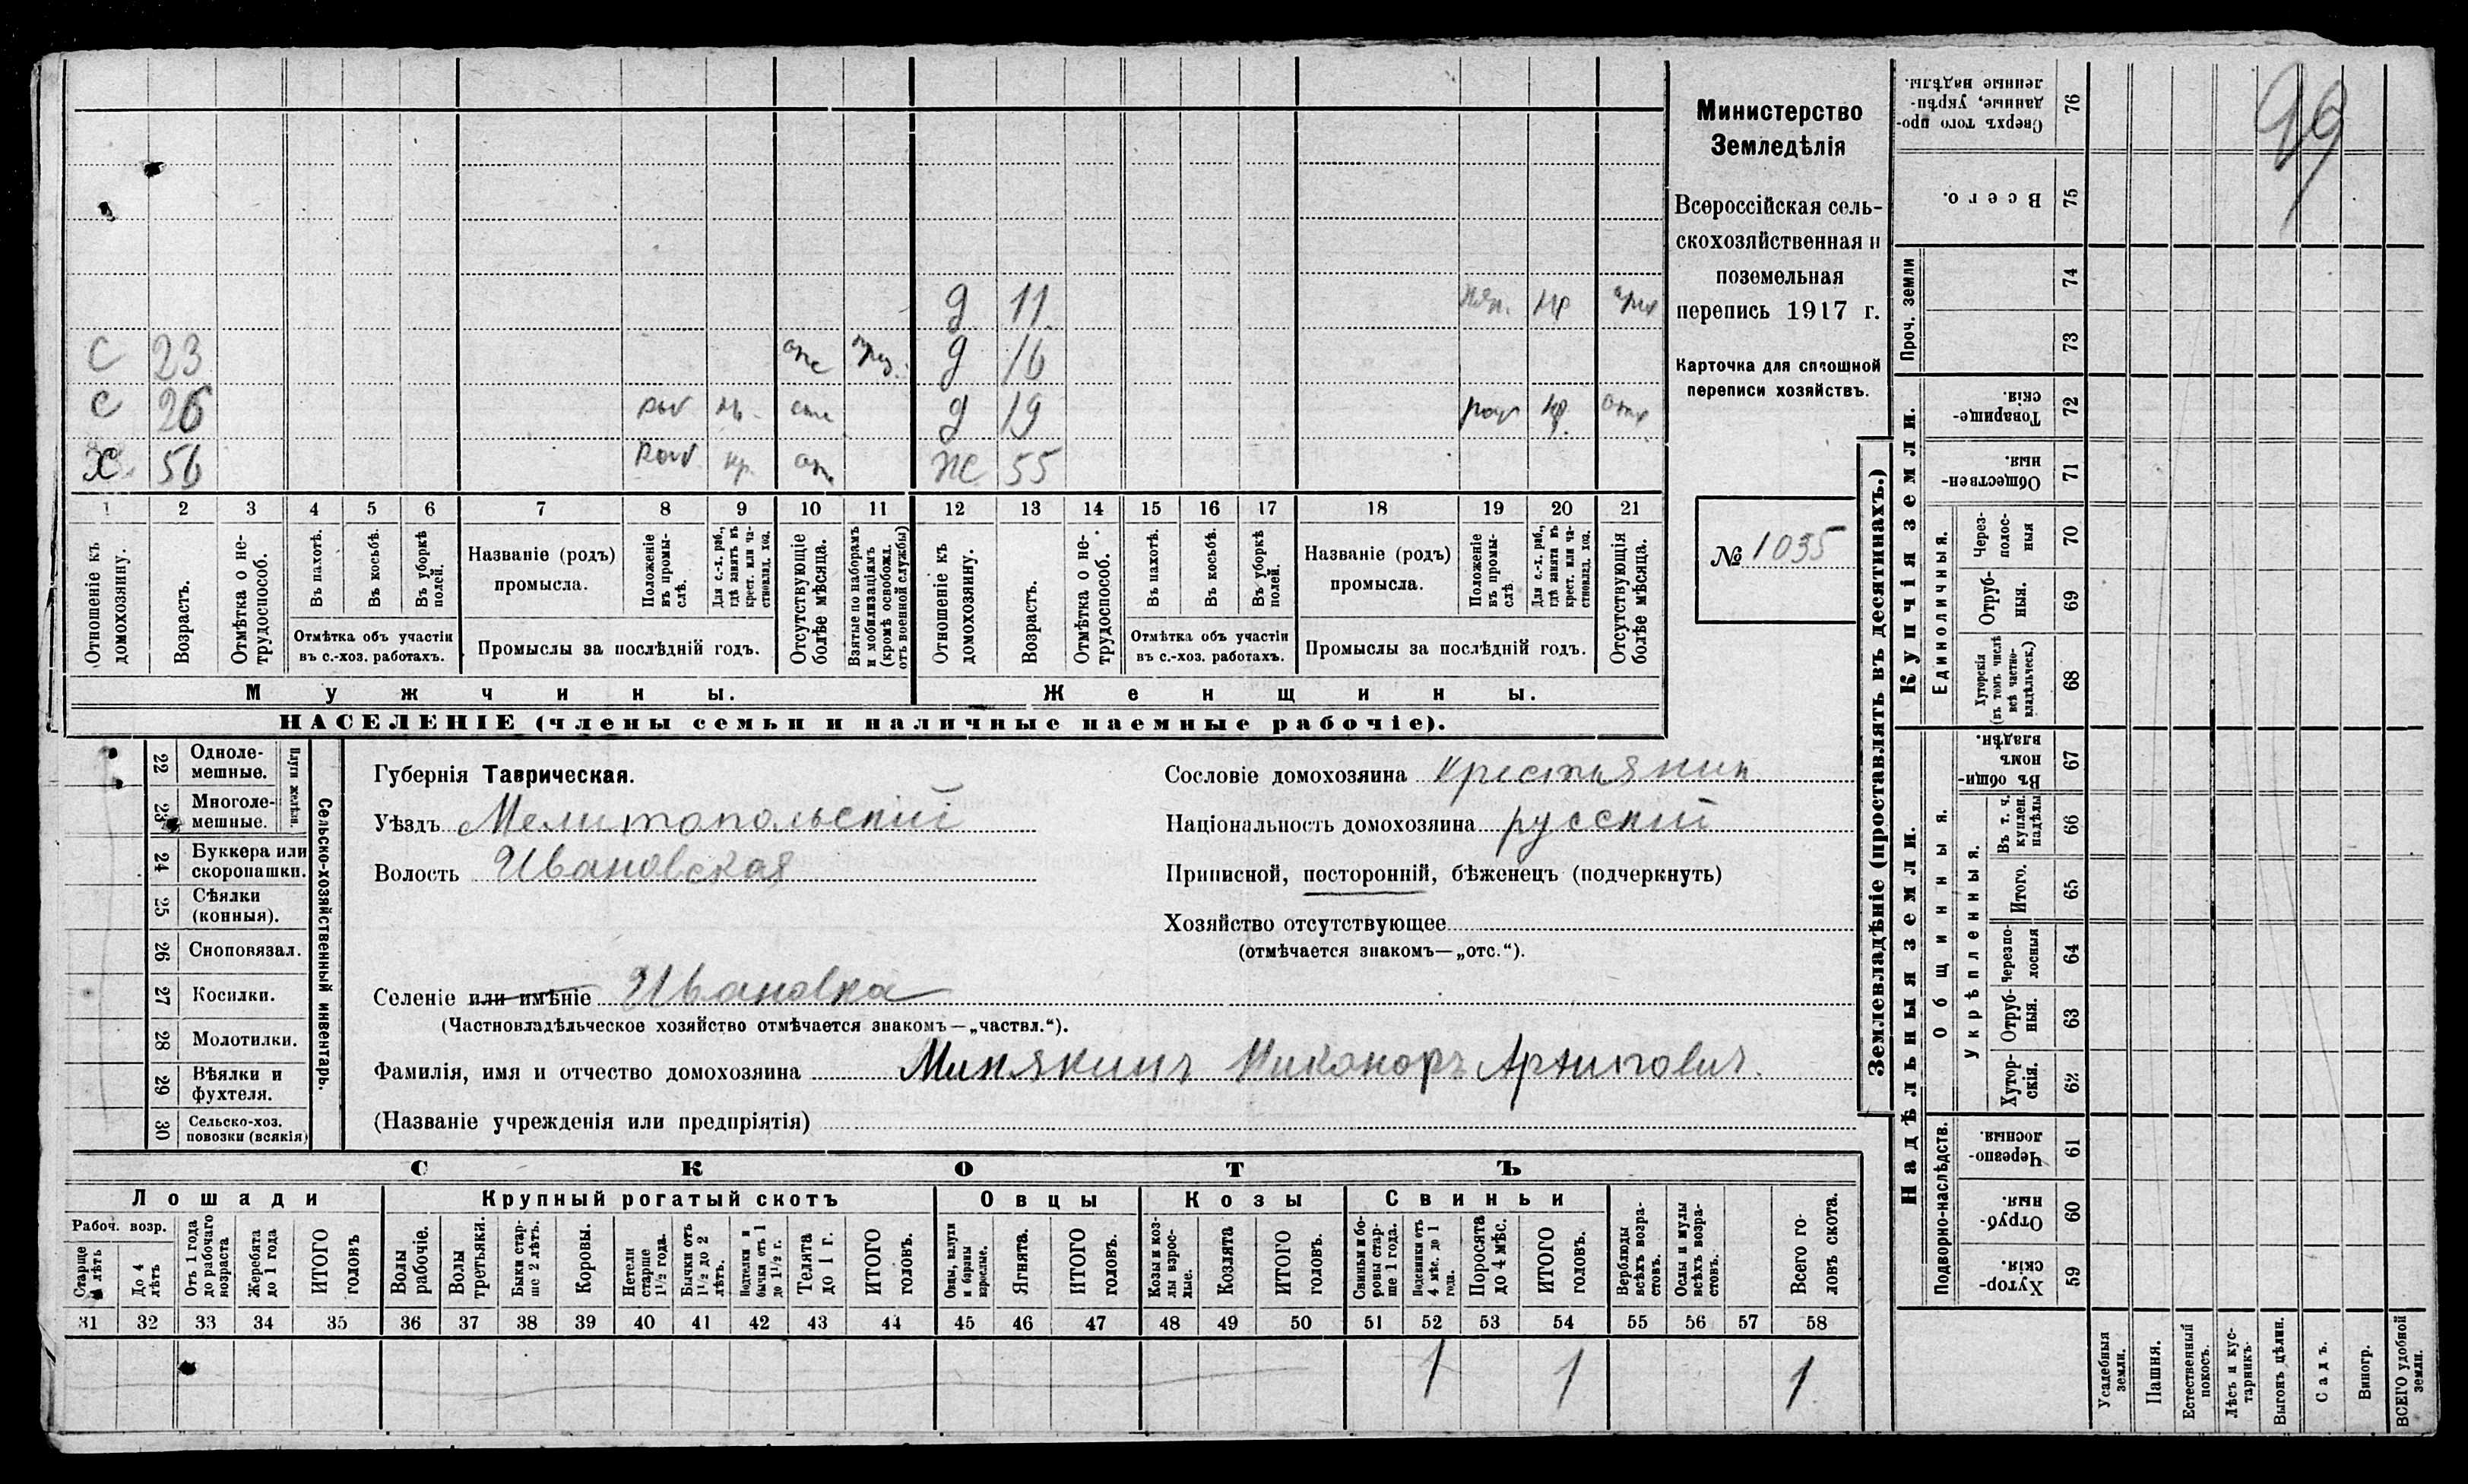 99
Министерство
Земледѣлія
Всероссійская сель-
скохозяйственная и
поземельная
перепись 1917 г.
Карточка для сплошной
переписи хозяйствъ.
№ 1035
д 11
С 23 д 16
С 26 д 19
Х 56 Ж 55
1 2 3 4 5 6 7 8 9 10 11 12 13 14 15 16 17 18 19 20 21
Отношеніе къ домохозяину.
Возрастъ.
Отмѣтка о не-трудоспособ.
Въ пахотѣ.
Въ косьбѣ.
Въ уборкѣ полей.
Отмѣтка объ участіи
въ с.-хоз. работахъ.
Названіе (родъ)
промысла.
Положеніе въ промы-слѣ.
Для с.-х. раб., гдѣ занятъ въ крест. или ча-стновлад. хоз.
Промыслы за послѣдній годъ.
Отсутствующіе болѣе мѣсяца.
Взятые по наборамъ и мобилизаціямъ (кромѣ освобожд. отъ военной службы)
Отношеніе къ домохозяину.
Возрастъ.
Отмѣтка о не-трудоспособ.
Въ пахотѣ.
Въ косьбѣ.
Въ уборкѣ полей.
Отмѣтка объ участіи
въ с.-хоз. работахъ.
Названіе (родъ)
промысла.
Положеніе въ промы-слѣ
Для с.-х. раб., гдѣ занята въ крест. или ча-стновлад. хоз.
Промыслы за послѣдній годъ.
Отсутствующія болѣе мѣсяца.
Мужчины.
Женщины.
НАСЕЛЕНІЕ (члены семьи и наличные наемные рабочіе).
Сельско-хозяйственный инвентарь.
Плуги желѣзн.
22 Одноле-мешные.
23 Многоле-мешные.
24 Буккера или скоропашки.
25 Сѣялки (конныя).
26 Сноповязал.
27 Косилки.
28 Молотилки.
29 Вѣялки и фухтеля.
30 Сельско-хоз. повозки (всякія)
Губернія Таврическая.
Уѣздъ Мелитопольскій
Волость Ивановская
Сословіе домохозяина крестьянин
Національность домохозяина русскій
Приписной, посторонній, бѣженецъ (подчеркнуть)
Хозяйство отсутствующее
(отмѣчается знакомъ—„отс.“).
Селеніе или имѣніе Ивановка
(Частновладѣльческое хозяйство отмѣчается знакомъ—„частвл.“).
Фамилія, имя и отчество домохозяина Минякинъ Никоноръ
(Названіе учрежденія или предпріятія)
СКОТЪ
Лошади
Крупный рогатый скотъ
Овцы
Козы
Свиньи
Рабоч. возр.
Старше 4 лѣтъ
До 4 лѣтъ
Отъ 1 года до рабочаго возраста
Жеребята до 1 года
ИТОГО головъ
Волы рабочіе.
Волы третьяки.
Быки стар-ше 2 лѣтъ.
Коровы.
Нетели старше 1½ года.
Бычки отъ 1½ до 2 лѣтъ.
Подтелки и бычки отъ 1 до 1½ г.
Телята до 1 г.
ИТОГО головъ.
Овцы, валухи и бараны взрослые.
Ягнята.
ИТОГО головъ.
Козы и коз-лы взрос-лые.
Козлята
ИТОГО головъ.
Свиньи и бо-ровы стар-ше 1 года.
Подсвинки отъ 4 мѣс. до 1 года.
Поросята до 4 мѣс.
ИТОГО головъ.
Верблюды всѣхъ возра-стовъ.
Ослы и мулы всѣхъ возра-стовъ.
Всего го-ловъ скота.
31 32 33 34 35 36 37 38 39 40 41 42 43 44 45 46 47 48 49 50 51 52 53 54 55 56 57 58
1 1 1
Землевладѣніе (проставлять въ десятинахъ.)
Надѣльныя земли.
Купчія земли.
Проч. земли
Сверхъ того про-данные, укрѣп-ленные надѣлы. 76
Всего. 75
74
73
Товарище-скія. 72
Обществен-ныя. 71
Единоличныя.
Через-полос-ныя 70
Отруб-ныя. 69
Хуторскія (въ томъ числѣ всѣ частно-владѣльческ.) 68
Общинныя.
Въ общи-номъ владѣн. 67
Укрѣпленныя.
Въ т. ч. куплен. надѣлы 66
Итого. 65
Черезпо-лосныя 64
Отруб-ныя. 63
Хутор-скія. 62
Подворно-наслѣдств.
Черезпо-лосныя. 61
Отруб-ныя. 60
Хутор-скія. 59
Усадебныя земли.
Пашня.
Естественный покосъ.
Лѣсъ и кус-тарникъ.
Выгонъ цѣлин.
Садъ.
Виногр.
ВСЕГО удобной земли.